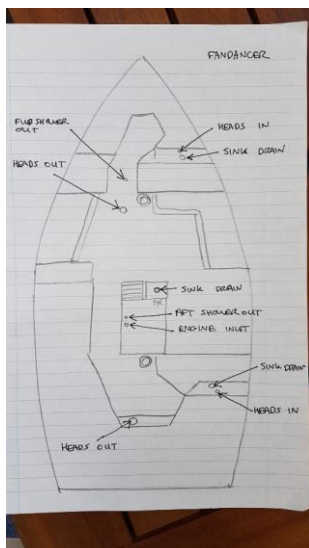 FANDANCER
FWD SHOWER
OUT
HEADS IN
SINK DRAIN
HEADS OUT
SINK DRAIN
AFT SHOWER OUT
ENGINE INLET
SINK DRAIN
HEADS IN
HEADS OUT